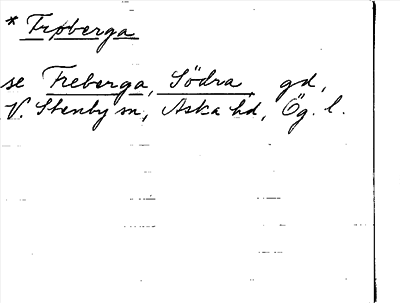 * Frøberga
se Freberga, Södra gd,
V. Stenby sn, Aska hd, Ög. l.